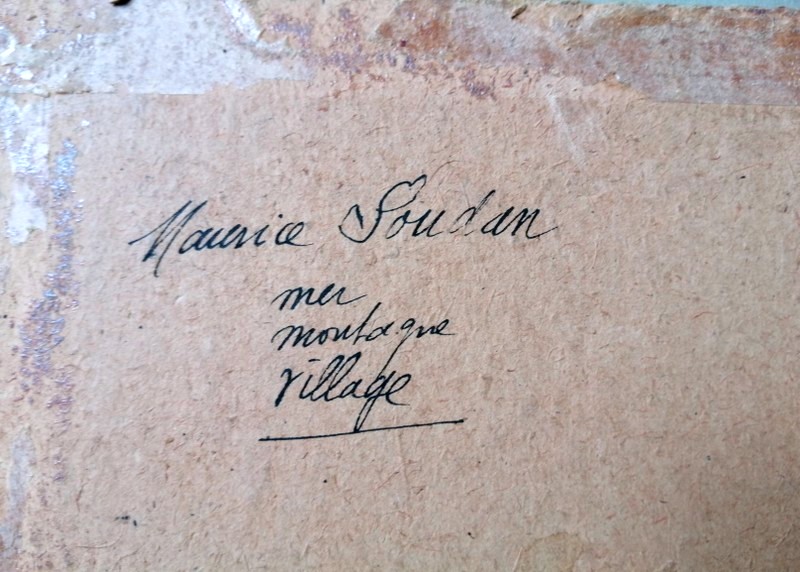 Maurice Soudan
mer
montagne
village